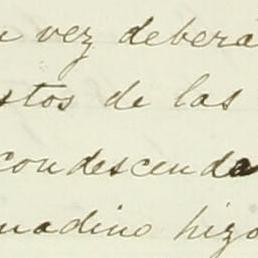 vez deberá
stos de las
condescenda
nadino hizo